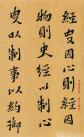 經史因心則經因
物則史經以制心
史以制事以約御